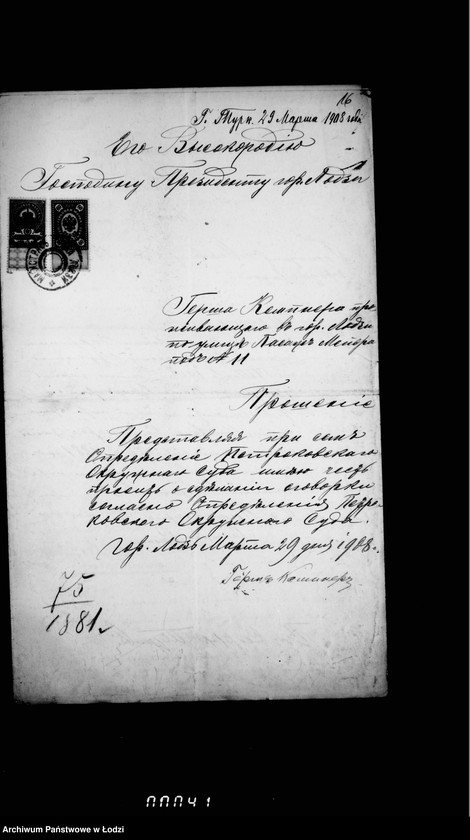 16
29 Марта 1908 года
Его Высокородію
Господину Президенту гор. Лодзи
Герша Кемпнера про
живающаго в гор. Лодзи
по улицѣ Пасажъ Мейера
подъ № 11
Прошеніе
Представляя при семъ
Опредѣленіе Петроковскаго
Окружнаго Суда имѣю честь
просить о сдѣланіи оговорки
согласно Опредѣленія Петро-
ковского Окружного Суда.
гор. Лодзь Марта 29 дня 1908 г.
75
1881 г
00041
Archiwum Państwowe w Łodzi